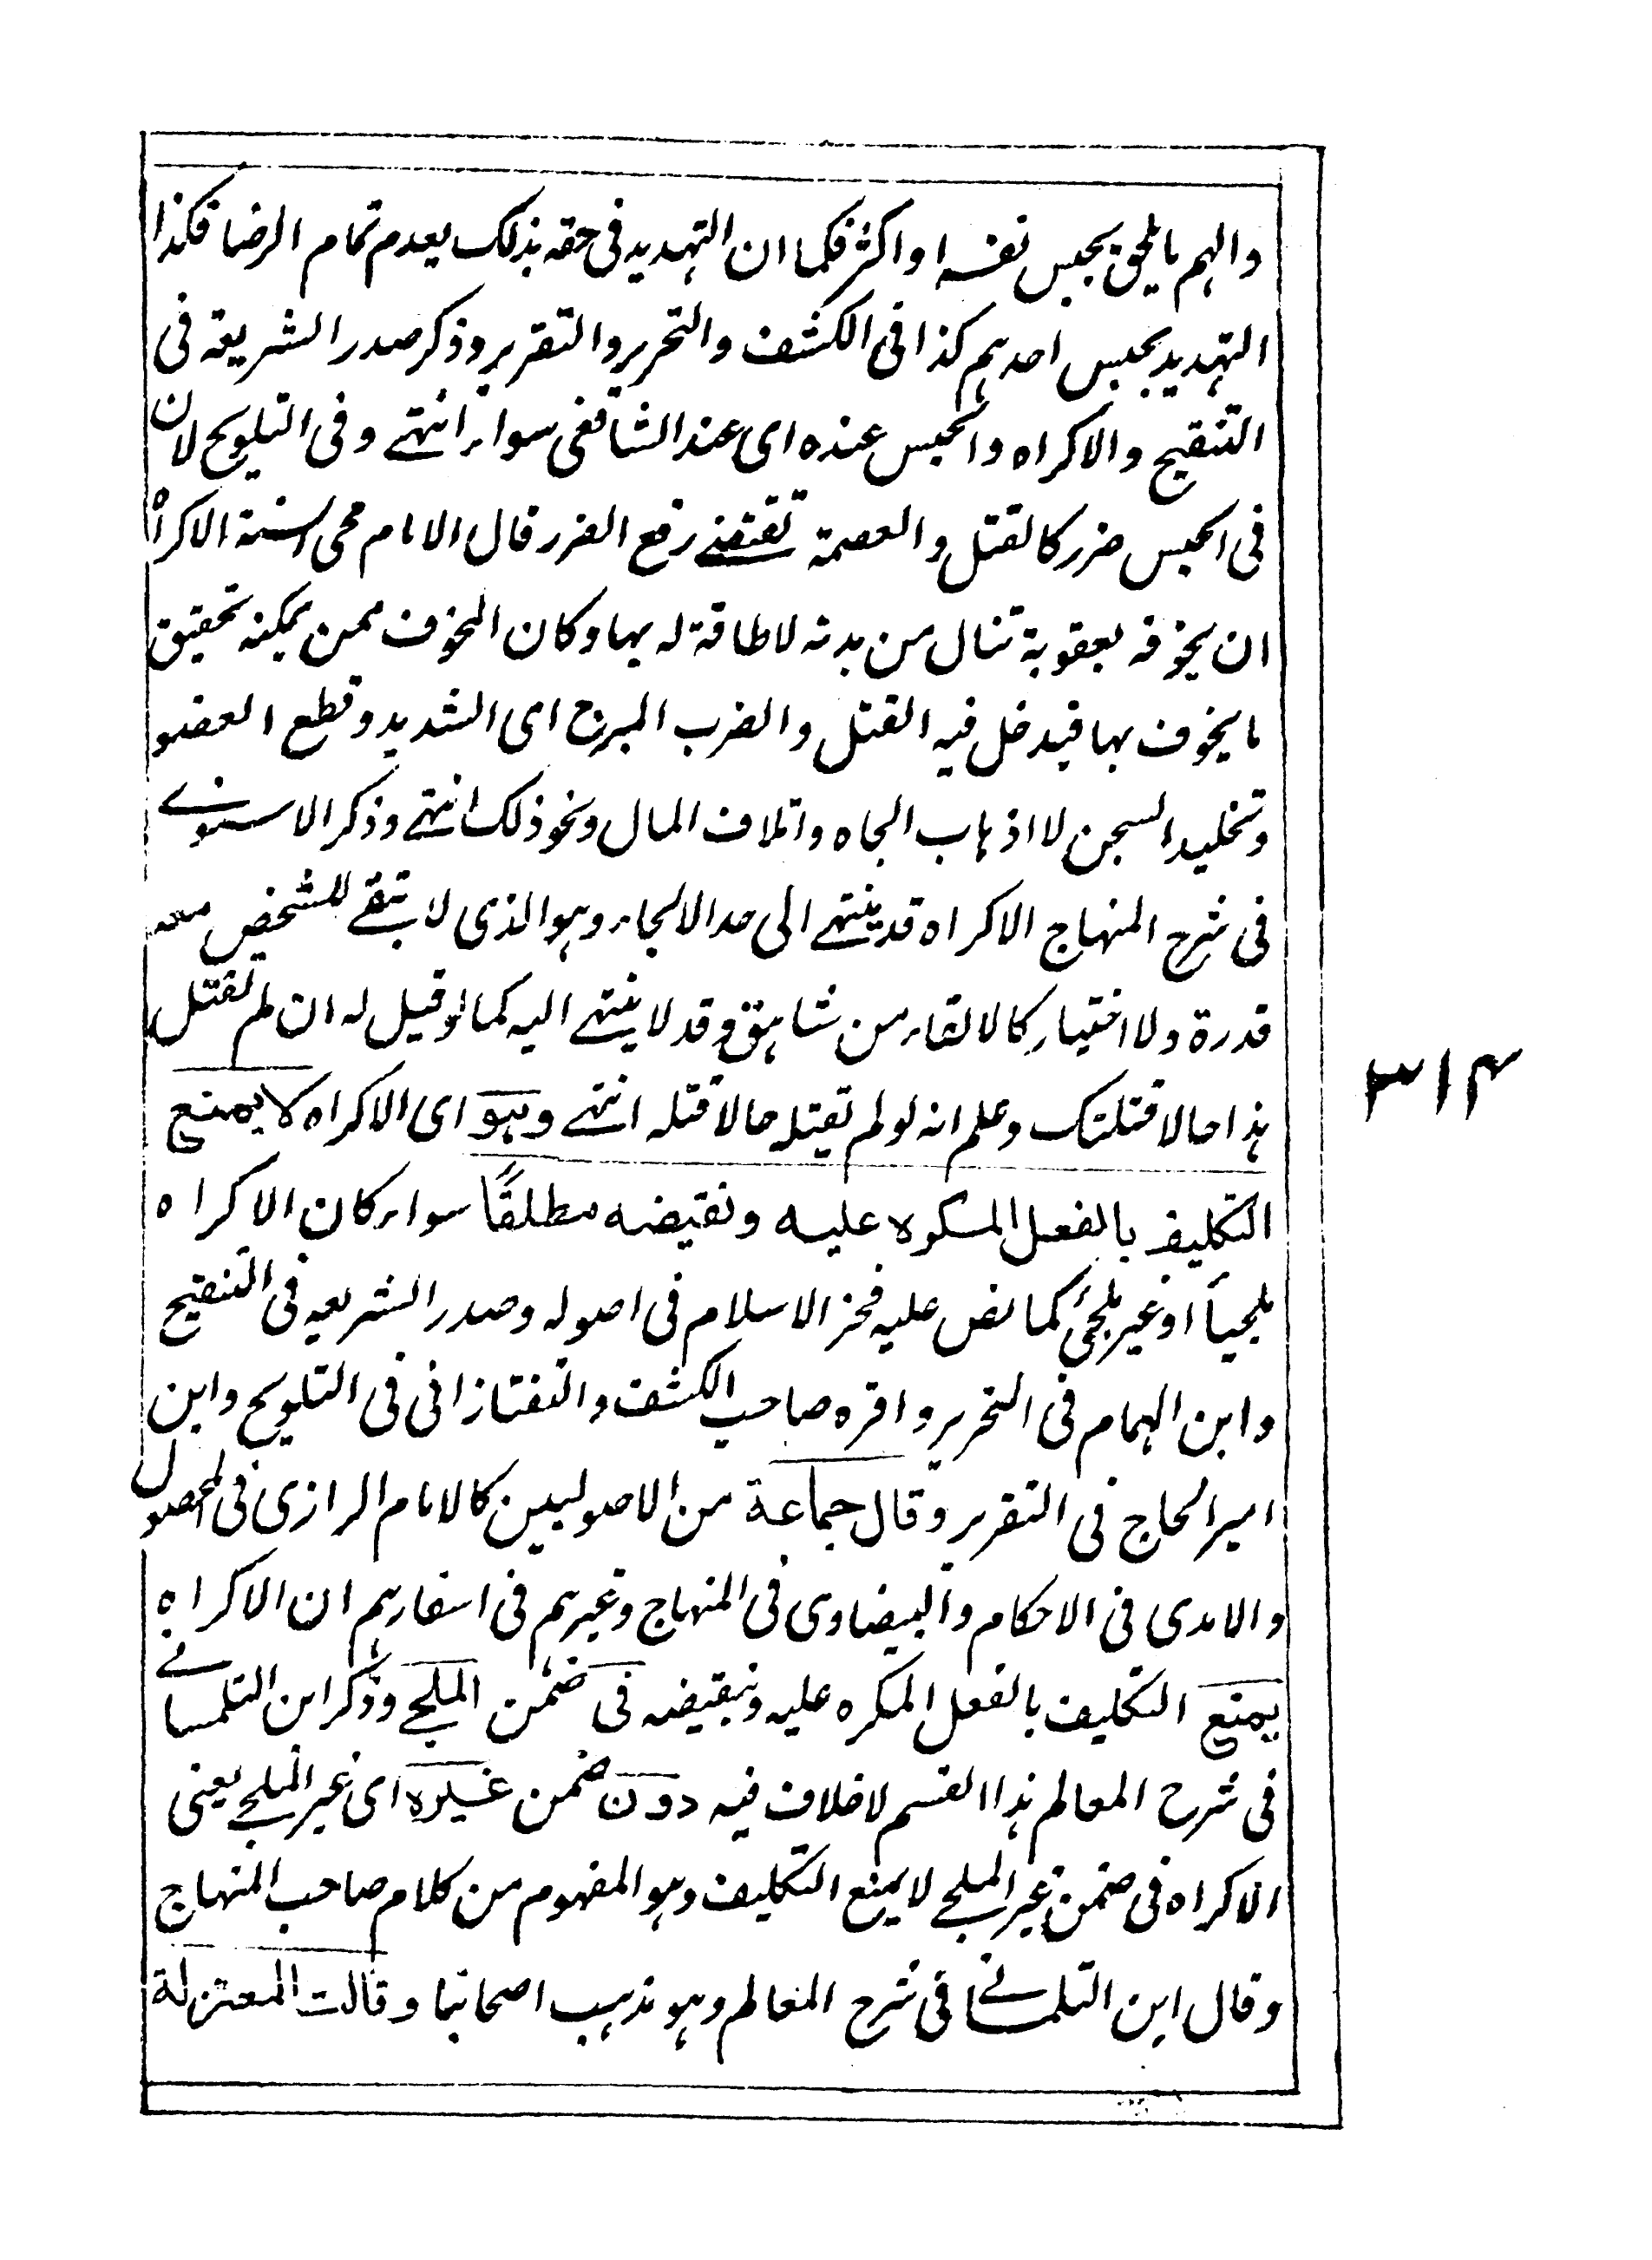 والهم ما يلحق بحبس نفسه او اكثر فكما ان التهديد فى حقه بذلك يعدم تمام الرضا فكذا
التهديد بحبس احدهم كذا فى الكشف والتحرير والتقرير وذكر صدر الشريعة فى
التنقيح والاكراه والحبس عنده اى عند الشافعى سواء انتهى وفى التلويح لان
فى الحبس ضرر كالقتل والعصمة تقتضى رفع الضرر قال الامام محى السنة الاكراه
ان يخوفه بعقوبة تنال من بدنه لا طاقة له بها وكان المخوف ممن يمكنه تحقيق
ما يخوف بها فيدخل فيه القتل والضرب المبرح اى الشديد وقطع العضو
وتخليد السجن لا اذهاب الجاه واتلاف المال ونحو ذلك انتهى وذكر الاسنوى
فى شرح المنهاج الاكراه قد ينتهى الى حد الالجاء وهو الذى لا تبقى للشخص معه
قدرة ولا اختيار كالالقاء من شاهق وقد لا ينتهى اليه كما لو قيل له ان لم تقتل
هذا حالا قتلتك وعلم انه لو لم تقتله حالا قتله انتهى وهو اى الاكراه لا يمنع
التكليف بالفعل المكره عليه ونقيضه مطلقًا سواء كان الاكراه
ملجيأ او غير ملجئ كما نص عليه فخر الاسلام فى اصوله وصدر الشريعه فى التنقيح
وابن الهمام فى التحرير واقره صاحب الكشف والتفتازانى فى التلويح وابن
امير الحاج فى التقرير وقال جماعة من الاصوليين كالامام الرازى فى المحصول
والامدى فى الاحكام والبيضاوى فى المنهاج وغيرهم فى اسفارهم ان الاكراه
يمنع التكليف بالفعل المكره عليه وبنقيضه فى ضمن الملجى وذكر ابن التلمسانى
فى شرح المعالم هذا القسم لا خلاف فيه دون ضمن غيره اى غير الملجى يعنى
الاكراه فى ضمن غير الملجى لا يمنع التكليف وهو المفهوم من كلام صاحب المنهاج
وقال ابن التلمسانى فى شرح المعالم وهو مذهب اصحابنا وقالت المعتزلة
٣١٤